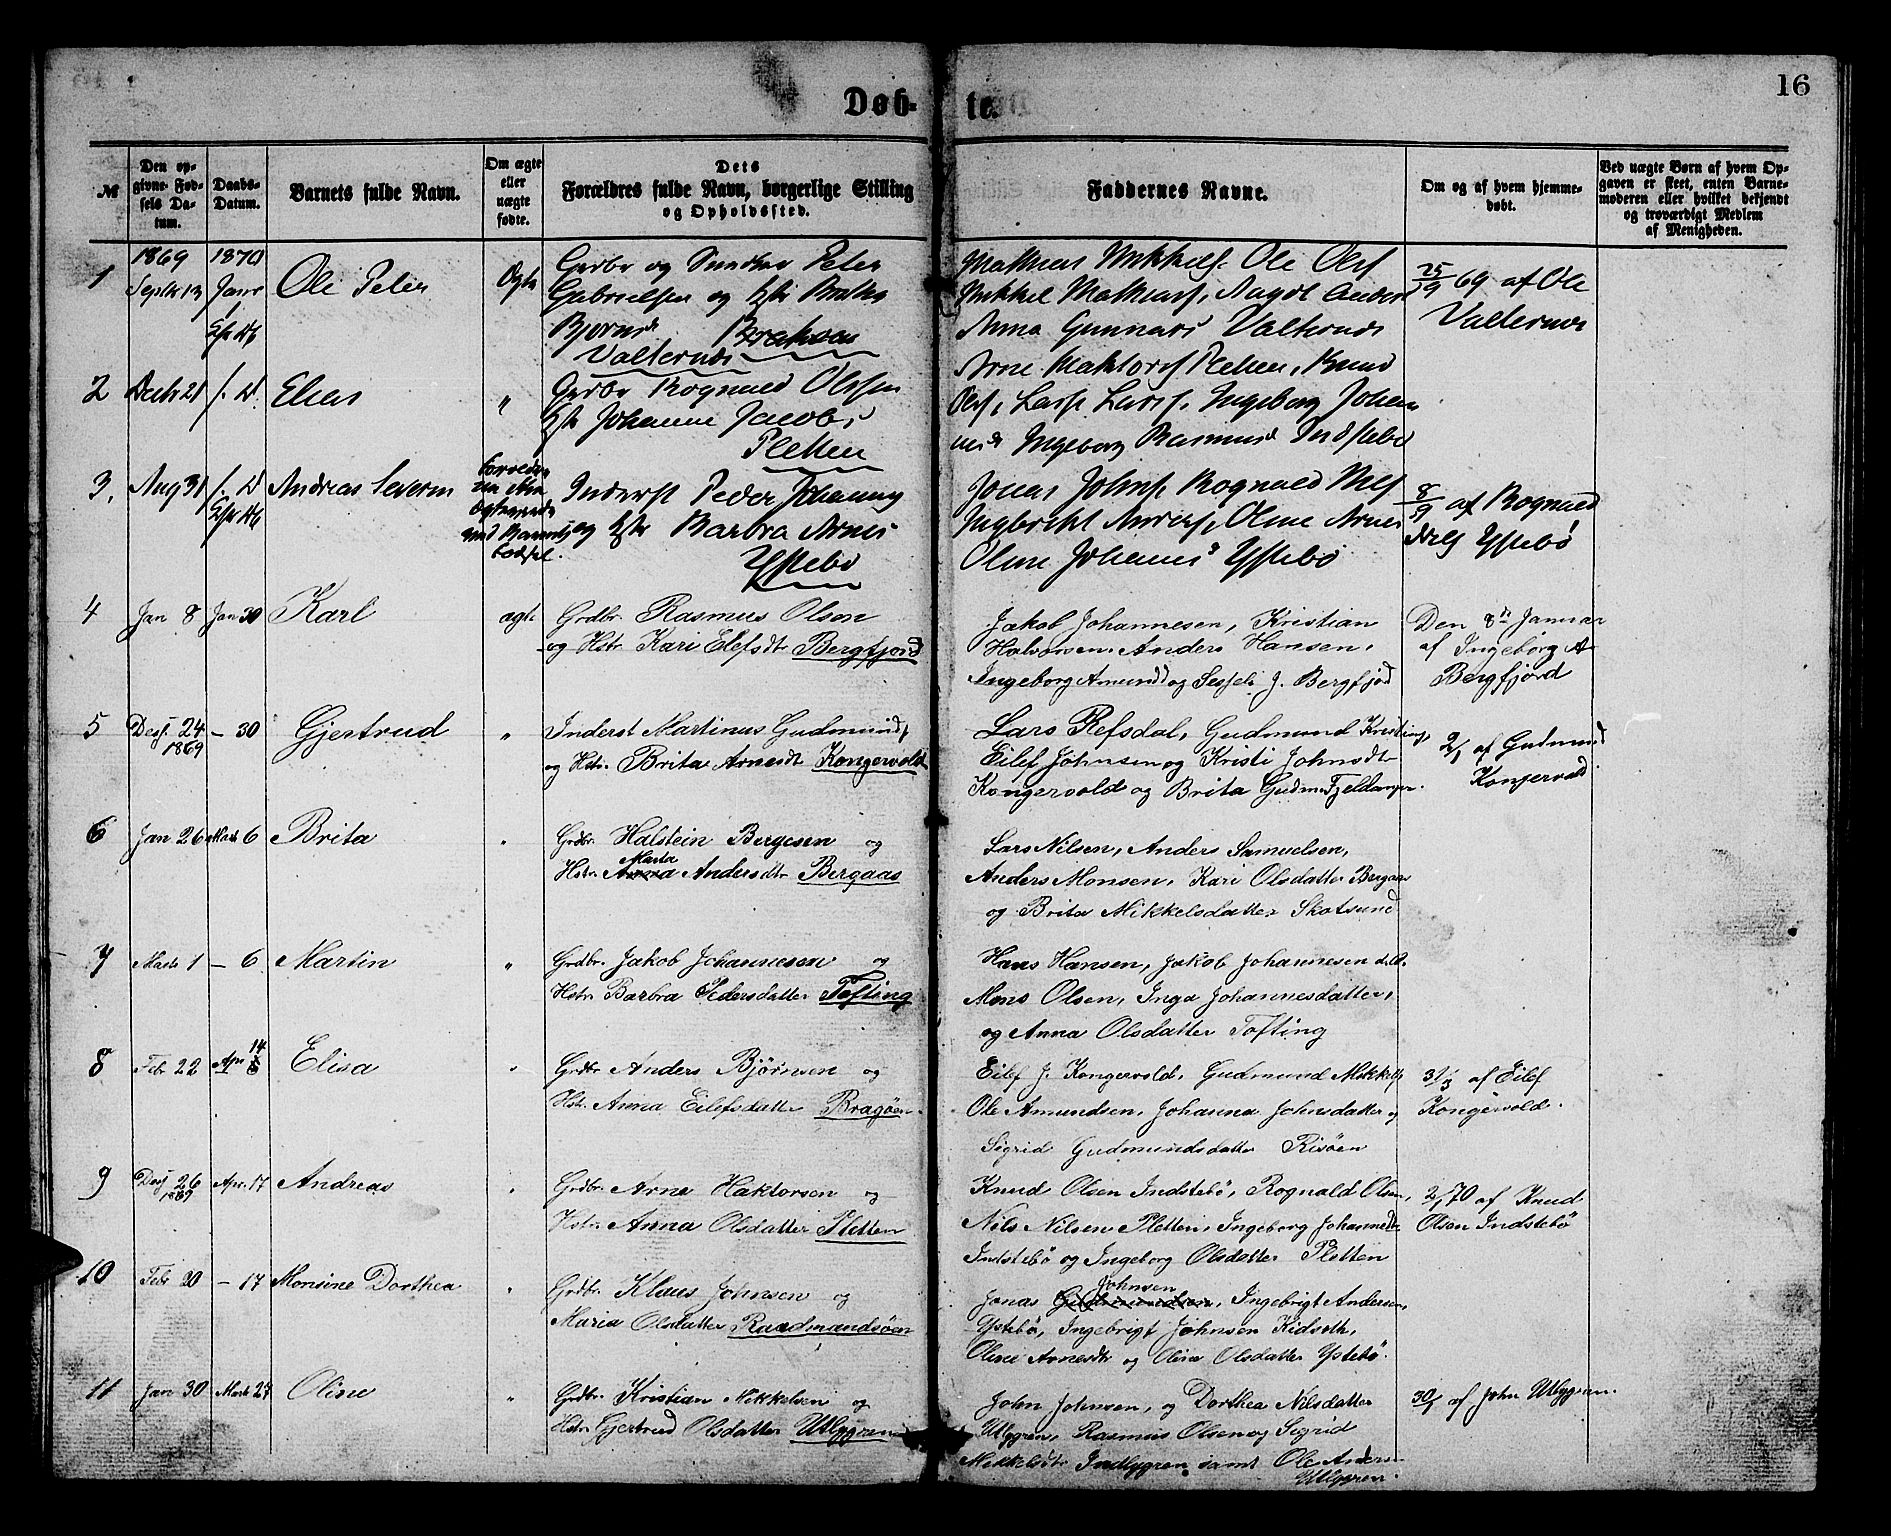 16
Døb-te.
№
Den op-
givne Fød-
sels Da-
tum.
Daabs-
Datum.
Barnets fulde Navn.
Om ægte
eller
uægte
fødte.
Dets
Forældres fulde Navn, borgerlige Stilling
og Opholdssted.
Faddernes Navne.
Om og af hvem hjemme-
døbt.
Ved uægte Børn af hvem Op-
gaven er skeet, enten Barne-
moderen eller hvilket bekjendt
og troværdigt Medlem
af Menigheden.
1869 1870
1 Septbr 13 Janr Ole Peter Ægte
Grdbr og Peter
Gabrielsen og Hstr
Bjørnsd
Valternæs
Mathias Mikkels. Ole Ols.
Mikkel Mathias.
Anna Gunnars Valternæs
25/9 69 af Ole
Valternæs
2 Decbr 21 s. D. Elias "
Grdbr Rognald Olssen
Hstr Johanne Jacobs
Pletten
Arne Pletten, Knud
Ols, Lars Lars. Ingeborg Johan
nesdr Ingeborg Rasmusd Indstebø
3. Aug 31 s. D. Andreas Severin
Inderst Peder Johanns
og Hstr Barbra Arnes
Ystebø
Jonas Johns. Rognald Nels
Ingbrikt Anders, Oline Arnes
Oline Johannesd Ystebø
8/9 af Rognald
Nels Ystebø
4 Jan 8 Jan 30 Karl ægte
Grdbr. Rasmus Olson
og Hstr Kari Elefsdtr Bergfjord
Jakob Johannesen, Kristian
Halvorsen. Anders Hansen,
Ingeborg Amundd og Sessele J. Bergfjod
Den 8de Januar
af Ingeborg A
Bergfjord
5 Dess. 24 1869 - 30 Gjertrud "
Inderst Martinus Gudmunds
og Hstr. Brita Arnesdt Kongervold
Lars Refsdal, Gudmund Kristians,
Eilef Johnsen og Kristi Johnsdtr
Kongervold og Brita Gudm. Fjeldanger.
2/1 af Gudmund
Kongervold
6 Jan 26 Marts 6 Brita "
Grdbr. Halstein Bergesen og
Hstr. Marta Andersdtr Bergaas
Lars Nilsen, Anders Samuelsen,
Anders Monsen, Kari Olsdatter Bergaas
og Brita Mikkelsdatter Skotsund
7 Marts 1 - 6 Martin "
Grdbr. Jakob Johannesen og
Hstr Barbra Pedersdatter Tofting
Hans Hansen, Jakob Johannesen
Mons Olsen, Inga Johannesdatter,
og Anna Olsdatter Tofting
8 Febr 22 Apr 14 Elisa "
Grdbr Anders Bjørnsen og
Hstr. Anna Eilefsdatter Bragøen
Eilef J. Kongervold, Gudmund Mikkels
Ole Amundsen, Johanna Johnsdatter og
Sigrid Gudmundsdatter Risøen
31/3 af Eilef
Kongervold.
9 Dess 26 1869 Apr. 17 Andreas "
Grdbr. Arne Haktorsen og
Hstr. Anna Olsdatter Pletten
Knud Olsen Indstebø, Rognald Olsen,
Nils Nilsen Pletten, Ingeborg Johannesdtr
Indstebø og Ingeborg Olsdatter Pletten
2/1 70 af Knud
Olsen Indstebø
10 Febr 20 - 17 Monsine Dorthea "
Grdbr. Klaus Johnsen og
Maria Olsdatter Raadmandsøen
Jonas Gudmundsen Johnsen, Ingebrigt Andersen,
Ystebø, Ingebrigt Johnsen Kidseth,
Oline Arnesdtr og Olina Olsdatter Ystebø.
11 Jan 30 Marts 27 Oline "
Grdbr. Kristian Mikkelsen og
Hstr. Gjertrud Olsdatter Utlygren
John Johnsen, og Dorthea Nilsdatter
Utlygren, Rasmus Olsen og Sigrid
Mikkelsdtr Indlygren samt Ole Anders
Utlygren.
30/1 af John Utlygren.